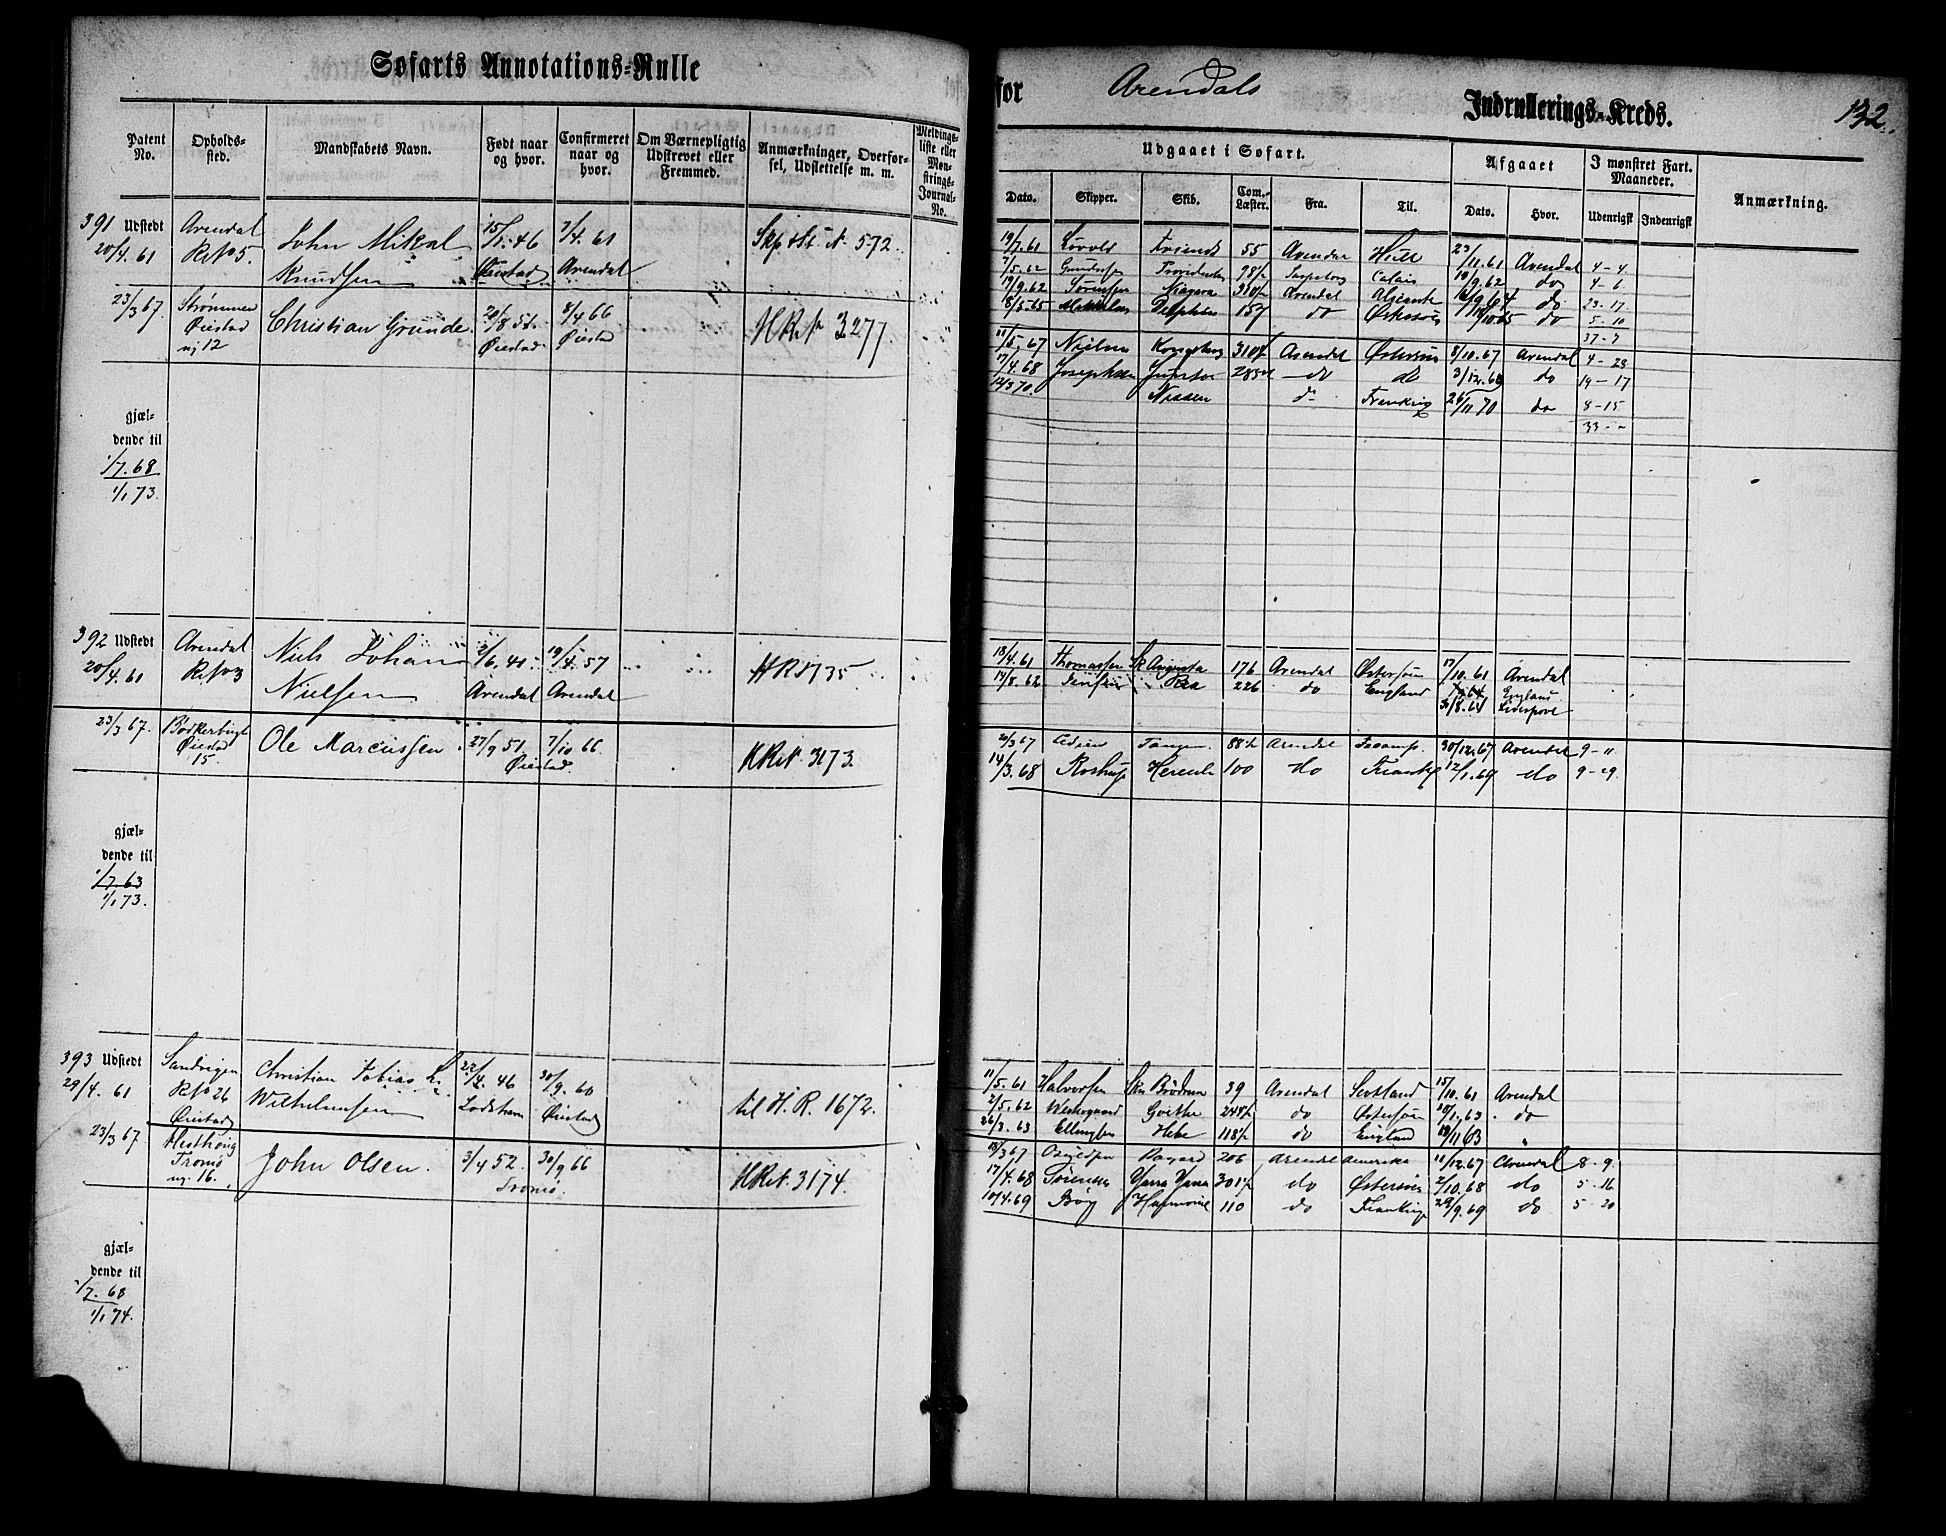 Søfarts Annotations-Rulle
for Arendals Indrullerings-Kreds. 132.
Patent No. Opholds-sted. Mandskabets Navn. Født naar og hvor. Confirmeret naar og hvor. Om Værnepligtig Udskrevet eller Fremmed. Anmærkninger, Overførsel, Udslettelse m. m. Meldingsliste eller Mønstrings-Journal-No.
Udgaaet i Søfart. Afgaaet I mønstret Fart. Maaneder.
Dato. Skipper. Skib. Com.-Læster. Fra. Til. Dato. Hvor. Udenrigsk Indenrigsk Anmærkning.
391 Udstedt Arendal John Mikal 15/12 46 7/4. 61 572.
20/4. 61 R No 5. Knudsen Øiestad Arendal
23/3 67 Strømmen Christian Grunde 20/8 51. 8/4 66 H R No 3277
Øiestad Øiestad Øiestad
ny 12
gjæl-
dende til
1/7. 68
1/1 73.
19/7. 61 55 Arendal Hull 23/11. 61 Arendal 4-4
7/5. 62 Gundersen Providentia Sarpsborg Calais 19/9. 62 do 4-6
17/9. 62 Sørensen Niagara Arendal Alicante 16/9 64 do 23-17
8/5. 65 Delphin 157 do Østersøen 10 65 do 5-10
37-7
11/5. 67 Nielsen Kongsberg 310 Arendal Østersøen 8/10. 67 Arendal 4-28
17/4. 68 Josephsen Jupiter do do 3/12. 69 do 19-17
12/3 70. Nissen Frankrig 26/11 70 do 8-15
33--
392 Udstedt Arendal Niels Johan 2/6. 41 19/4. 57 H R 1735
20/4. 61 R No 3 Nielsen Arendal Arendal
23/3 67. Ole Marcussen. 27/9 51. 7/10 66 H R No. 3173.
Øiestad Øiestad.
15.
gjæl-
dende til
1/7. 63
1/1 73.
18/4. 61 Thomassen Sk Augusta 176 Arendal Østersøen 17/10. 61 Arendal
14/8. 62 Jensen 226 do England England
8. 64 Liverpool
20/3 67 Tangen 88½ Arendal Fecamp. 30/12. 67 Arendal 9-11
14/3. 68 Rostrup Hercules 100 do Frankrig 12/1. 69 do 9-29.
393 Udstedt Sandvigen Christian Tobias 22/4. 46 30/9. 60 til H. R. 1672.
29/4. 61 R No 26 Wilhelmsen Øiestad
Øiestad
23/3 67 John Olsen. 3/4 52. 30/9 66 H R No. 3174.
Tromø Tromø.
ny. 16.
gjæl-
dende til
1/7. 68
1/1 74.
11/5. 61 Halvorsen 39 Arendal Scotland 15/10. 61 Arendal
2/5. 62 Westergaard Goethe 248½ do Østersøen 10/1. 63 do
26/3. 63 Ellingsen Hebe 118½ do England 19/11 63 "
18/3 67 206 Arendal Amerika 11/12. 67 Arendal 8-9.
17/4. 68 Sørensen Yarra Yarra 301½ do Østersøen 2/10. 68 do 5-16
10/4. 69 Bøg Harmonie 110 do Frankrig 29/9. 69 do 5-20